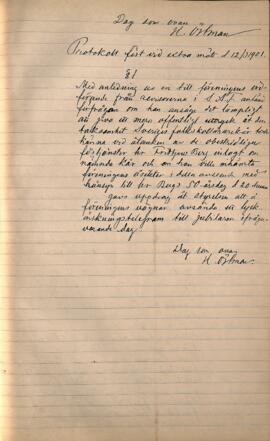 Dag som ovan
K. Östman
Protokoll fört vid extra möte d. 12/3 1901.
§1
Med anledning av en till föreningens ord-
förande från censorerna i S.A.F. anländ
förfrågan om han ansåge det lämpligt
att giva ett mera offentligt uttryck åt den
tacksamhet Sveriges folkskollärarekår bord
känna vid åtanken av de obestridliga
förtjänster hr Fridtjuv Berg inlagt om
nämnda kår och om han ville inhämta
föreningens åsikter i detta avseende med
hänsyn till hr Bergs 50-årsdag d. 20 denne
gavs uppdrag åt styrelsen att å
föreningens vägnar avsända ett lyck-
önskningstelegram till jubilaren ifråga-
varande dag.
Dag som ovan
K. Östman